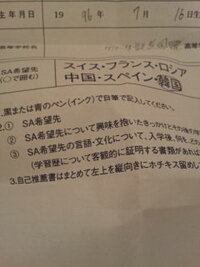 生年月日 19 96年 7月 16日生
SA希望先
(○で囲む)
スイス・フランス・ロシア
中国・スペイン・韓国
黒または青のペン(インク)で自筆で記入してください。
① SA希望先
② SA希望先について興味を抱いたきっかけと
③ SA希望先の言語・文化について、入学後、何を
(学習歴について客観的に証明する書類があれば
3.自己推薦書はまとめて左上を縦向きにホチキス留め